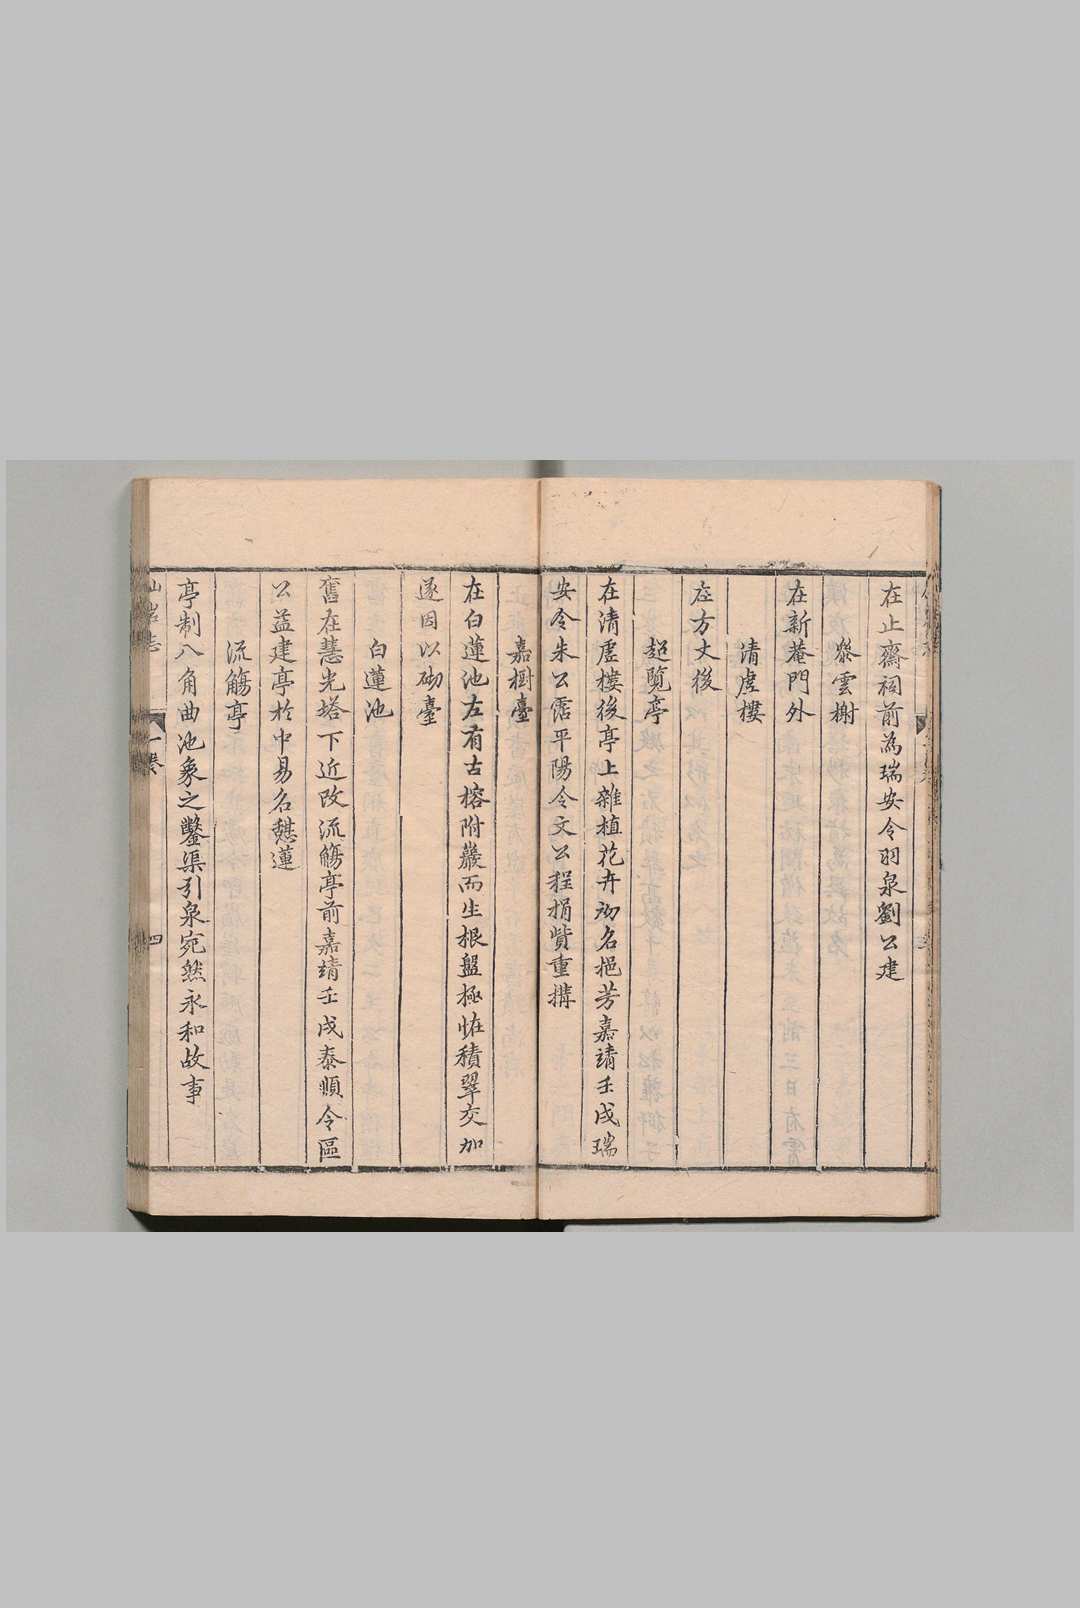 在止齋祠前為瑞安令羽泉劉公建
雲榭
在新菴門外
清虗樓
在方丈後
超覽亭
在清虗樓後亭上雜植花卉初名挹芳嘉靖壬戌瑞
安令朱公霑平陽令文公程捐貲重搆
嘉樹臺
在白蓮池左有古榕附巖而生根盤極怪積翠交加
遂因以砌臺
白蓮池
舊在慧光塔下近改流觴亭前嘉靖壬戌泰順令區
公益建亭於中易名憇蓮
流觴亭
亭制八角曲池象之鑿渠引泉宛然永和故事
仙岩志
一卷
四